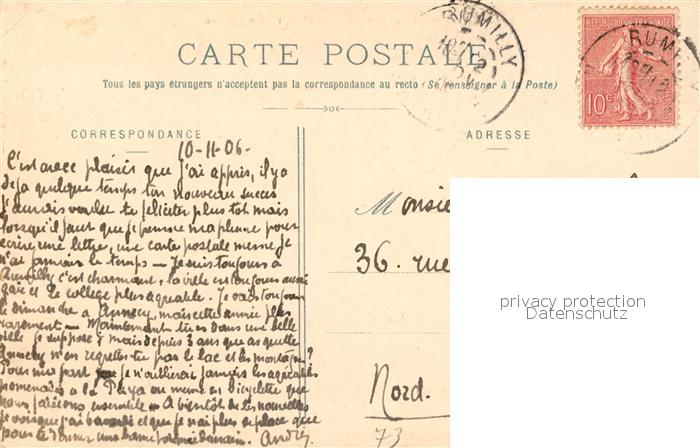 CARTE POSTALE
Tous les pays étrangers n'acceptent pas la correspondance au recto (Se renseigner à la Poste)
RUMILLY
RUMILLY
REPUBLIQUE FRANÇAISE
10c
CORRESPONDANCE
ADRESSE
10-11-06.
C'est avec plaisir que j'ai appris, il y a
déjà quelque temps ton nouveau succès
j'aurais voulu te féliciter plus tôt mais
lorsqu'il faut que je prenne ma plume pour
écrire une lettre, une carte postale meme je
n'ai jamais le temps — Je suis toujours à
Rumilly c'est charmant, la ville est toujours aussi
gaie et le collège plus agréable. Je vais toujours
le dimanche à Annecy, mais cette année plus
rarement — Maintenant tu es dans une belle
ville je suppose; mais depuis 3 ans que as quitté
Annecy n'en regrettes tu pas le lac et les montagnes?
Pour ma part je n'oublierai jamais les agréables
promenades à la ou meme en bicyclette que
nous faisions ensemble — A bientôt de tes nouvelles
je vois que j'ai bavardé et que je n'ai plus de place que
pour te donner une bonne poignée de main. André
Monsie
36. rue
Nord.
73
privacy protection
Datenschutz